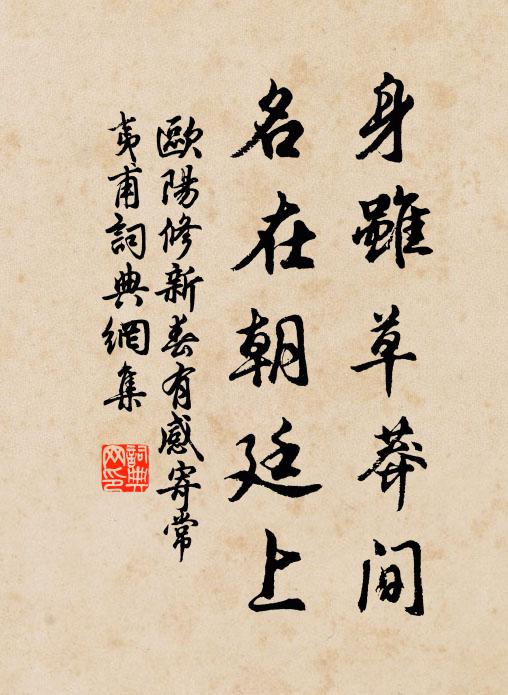 身雖草莽間
名在朝廷上
歐陽修新春有感寄常
夷甫詞典網集
詞典網印